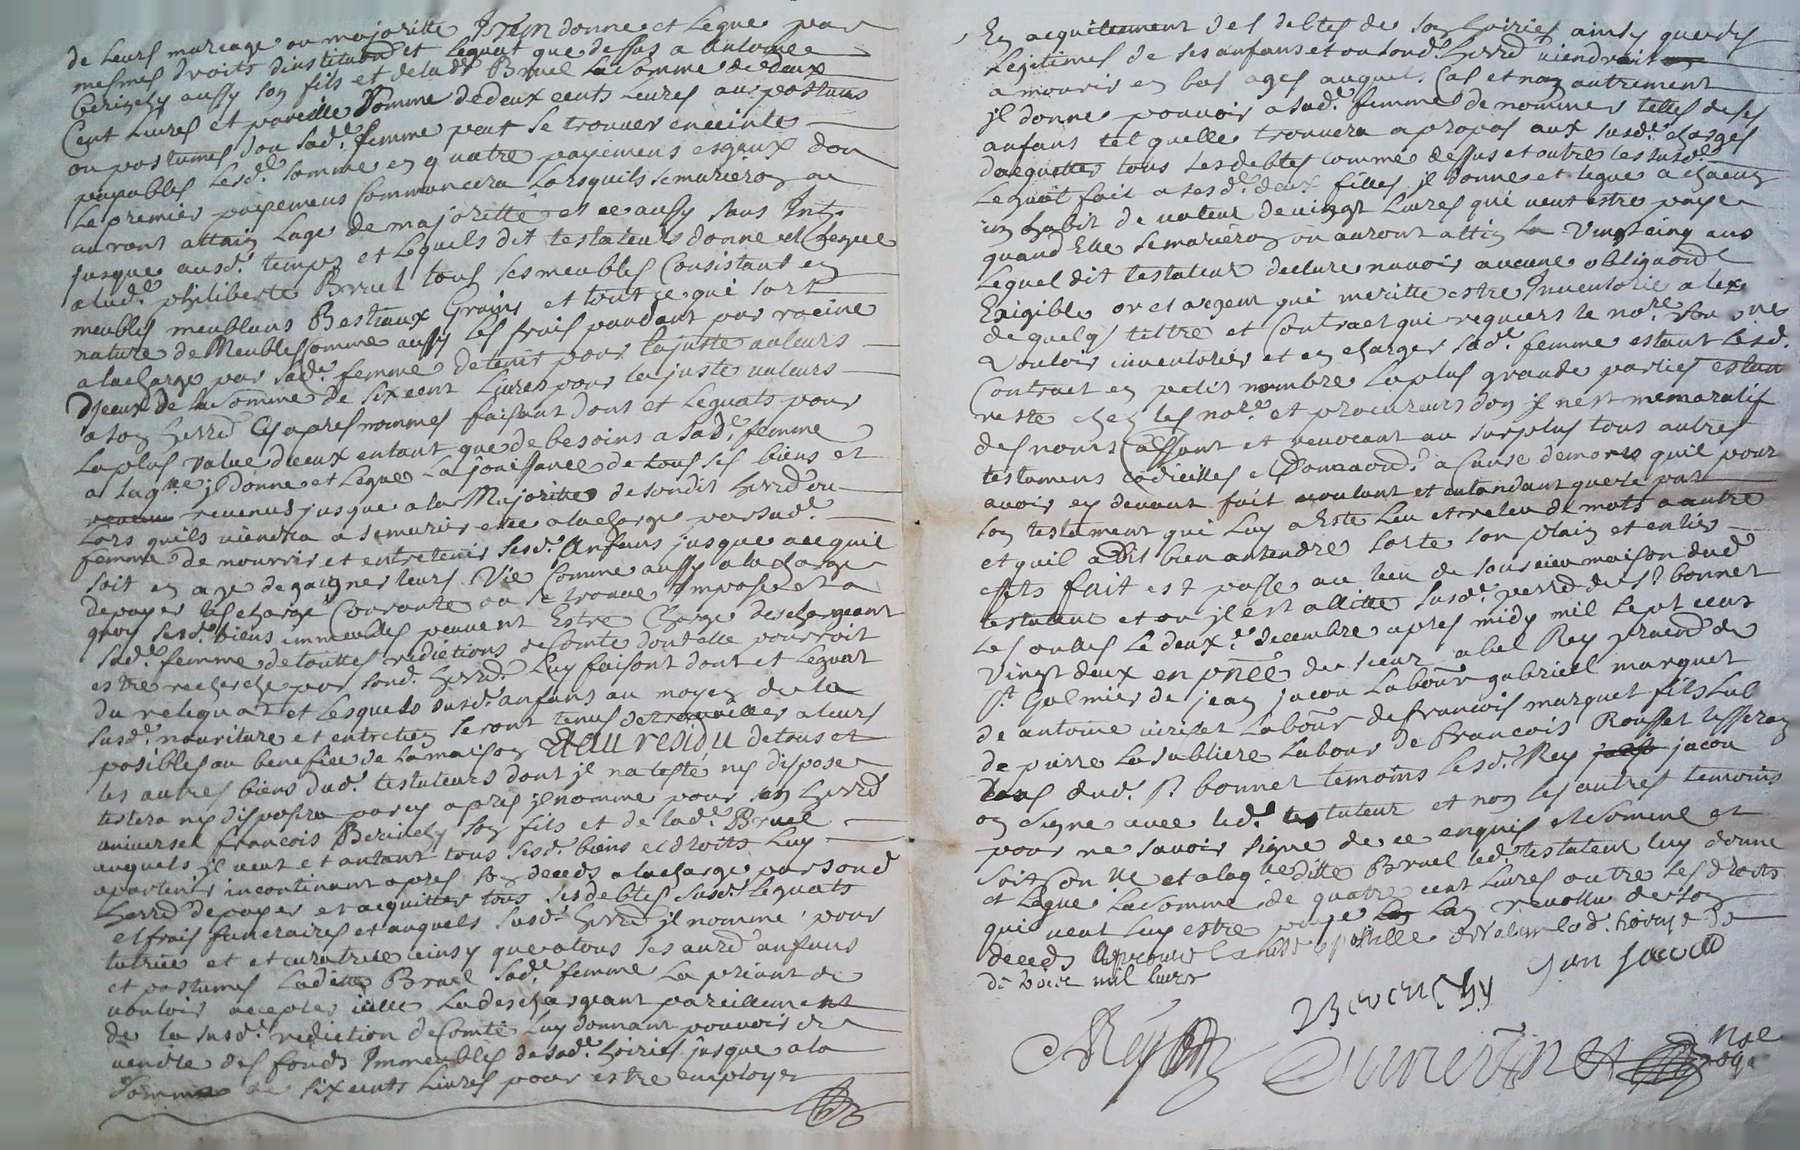 de leurs mariage ou majoritte Item donne et legue par
mesmes droits dinstitution et leguat que dessus a Antoine
Berichy aussy son fils et de lade Bruel la somme de deux
Cent livres et pareille somme de deux cents livres au postume
ou postumes dou sade femme peut se trouver enceinte
payables lesd. somme en quatre payemens esgaux dou
le premier payemens commancera lorsquils semarieron ou
auront attain lage de majoritte et ce aussy sans Intz
jusque ausd. temps et lequels dit testateurs donne et legue
a lade philiberte Bruel tous ses meubles Consistant en
meubles meublans Bestiaux Grains et tout ce qui sort
nature de Meubles comme aussy les fruis pandant par racine
a la charge par sade femme detenir pour la juste valeurs
Diceux de la somme de six cent livres pour la juste valeurs
a son herred cy apres nommes faisant dont et leguats pour
la plus value diceux entant que de besoins a sade femme
a laqlle il donne et legue la jouissance de tous ses biens et
revenus jusque a la Majoritte desondit herred ou
lors quils viendra a semarier et ce a la charge par sade
femme de nourrir et entretenir sesd. Anfans jusque ace quil
soit en age de gaigner leurs Vie comme aussy a la charge
de payer les charge Courante ou se trouve Imposee et a
quoy sesd. biens immeubles peuvent Estre Charge deschargeant
sade femme de touttes redictions de Comte dont elle pourroit
estre recherche par sond. herred. luy faisont dont et leguat
du reliquat et lesquels susd. anfans au moyen de la
susd. nouriture et entretien seront tenus de travailler a leurs
posibles au benefice de la maison Et au residu de tous et
les autres biens dud. testateurs dont il na teste ny dispose
testera ny disposera par cy apres il nomme pour son herred
universel francois Berichy son fils et de lade Bruel
auquels il veut et antant tous sesd. biens et droits luy
apartenir incontinant apres son deceds a la charge par sond
herred de payer et acquitter tous ses debtes susd. leguats
et frais funeraires et auquels susd. herred il nomme pour
tutrice et et curatrice ainsy que a tous ses aured anfans
et postumes laditte Bruel sade femme la priant de
vouloir accepter icelle la deschargeant pareillement
de la susd. rediction de Comte luy donnant pouvoir de
vendre des fonds Immeubles de sade hoiries jusque a la
somme de six cents livres pour estre employer
En acquittement des debtes de son hoiries ainsy que des
legitimes de ses anfans et ou sond. herred viendroit
a mourir en bas ages auquels Cas et non autrement
il donne pouvoir a sade femme de nommer telles de ses
anfans tel quelle trouvera a propos aux susd. charges
dacquitter tous les debtes comme dessus et outre les susd.
leguat fait a sesd. deux filles il donne et legue a chacun
un habit de valeur de vingt livres qui veut estre paye
quand Elle semarieron ou auront attin la vingt cinq ans
lequel dit testateur declare navoir aucune obligaonde
Exigible or et argent qui meritte estre Inventorie a lex
de quelqs tiltre et Contract qui requiers le nore sou ne
Vouloir inventorier et en charger sade femme estant lesd.
Contract en petit nombre la plus grande parties estan
reste chez les nore et procureurs dou il nest memoratif
des noms Cassant et revocant au surplus tous autres
testamens Codicilles et Donnaons a Cause demors quil pour
avoir cy devant fait voulant et entandant que le put
son testament qui luy a Este leu et releu de mots a autre
et quil a dit bien antendre sorte son plain et entier
effets fait et passe au lieu de maison dud
testateur et ou il est allitte susd. perred de St bonnet
les oulles le deux.e decembre apres midy mil sept cent
vingt deux en pnce du sieur abel Rey praticd de
St Galmier de jean jacou labour gabriel marquet
de antoine viriset labour de francois marquet fils lab
de pierre la subliere labour de francois Rousset tisseran
tous dud. St bonnet temoins lesd. Rey jacou
on signe avec led. testateur et non les autres temoins
pour ne savoir signe de ce enquis et somme et
soit Con lle et a laqlle ditte Bruel led. testateur luy donne
et legue la somme de quatre cent livres outre les droits
qui veut luy estre paye lan revollu de son
deceds
de mil livres
Berichy Jan Jacou
Rey
Duvertin
Nre
Roya